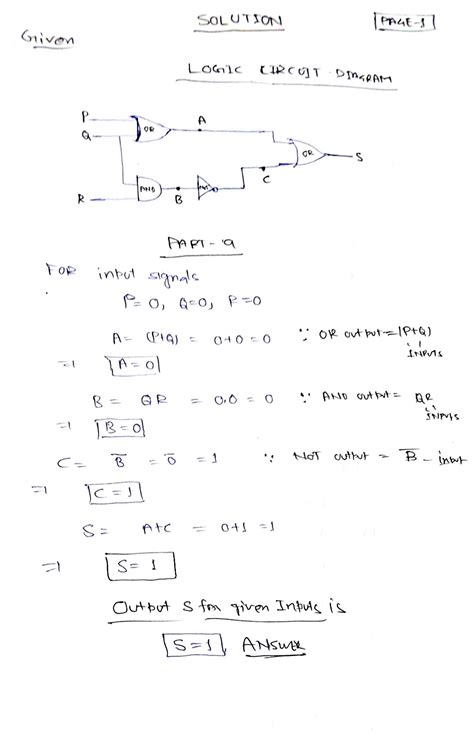 SOLUTION
PAGE-1
Given
LOGIC CIRCUIT DIAGRAM
P
Q
OR
A
OR
S
C
R
AND
B
NOT
PART-a
FOR input signals
P=0, Q=0, R=0
A= (P+Q) = 0+0=0 ∵ OR output=(P+Q)
INPUTS
⇒ A=0
B= QR = 0.0=0 ∵ AND output= QR
INPUTS
⇒ B=0
C= B̅ = 0̅ =1 ∵ NOT output = B̅ - input
⇒ C=1
S= A+C = 0+1=1
⇒ S= 1
Output S for given Inputs is
S=1, ANSWER